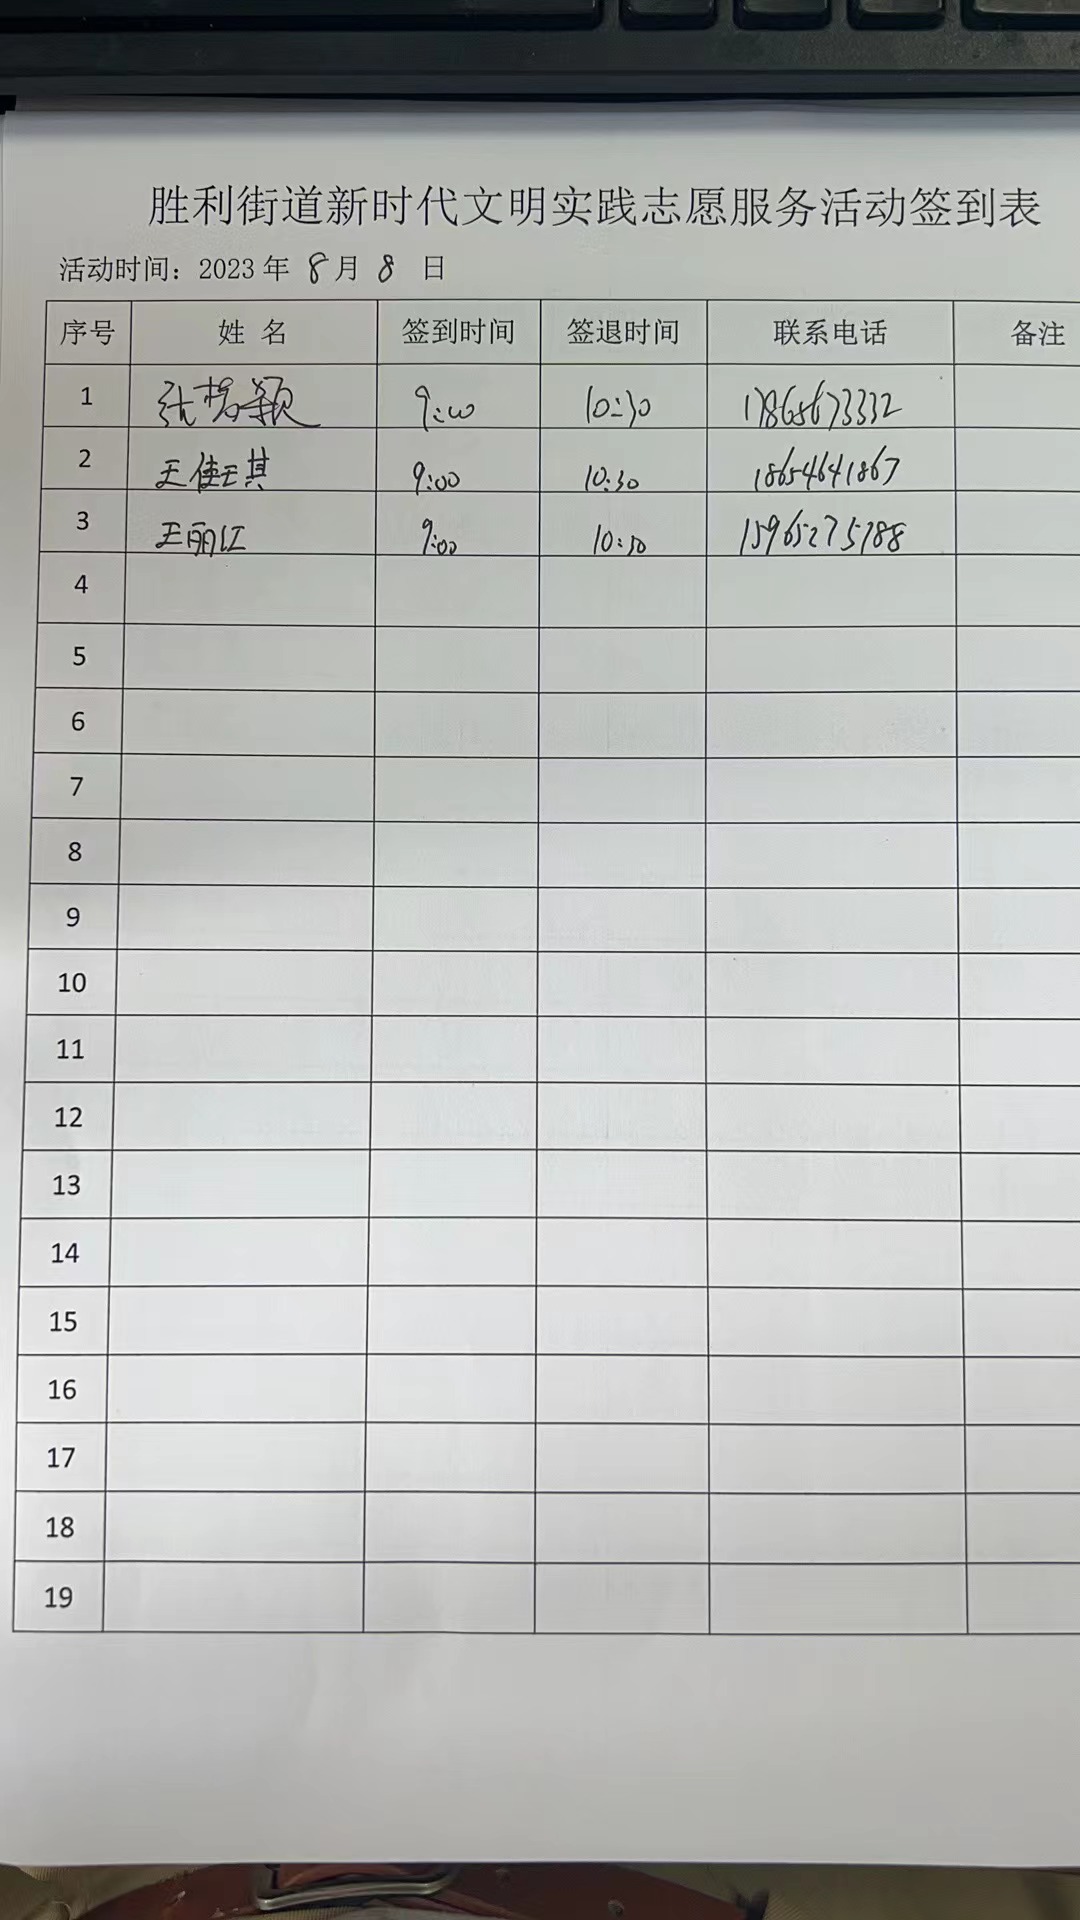 胜利街道新时代文明实践志愿服务活动签到表
活动时间：2023 年 8 月 8 日
序号 姓 名 签到时间 签退时间 联系电话 备注
1 9:00 10:30 17865673332
2 王佳琪 9:00 10:30 18654641867
3 王丽江 9:00 10:30 15965275788
4
5
6
7
8
9
10
11
12
13
14
15
16
17
18
19